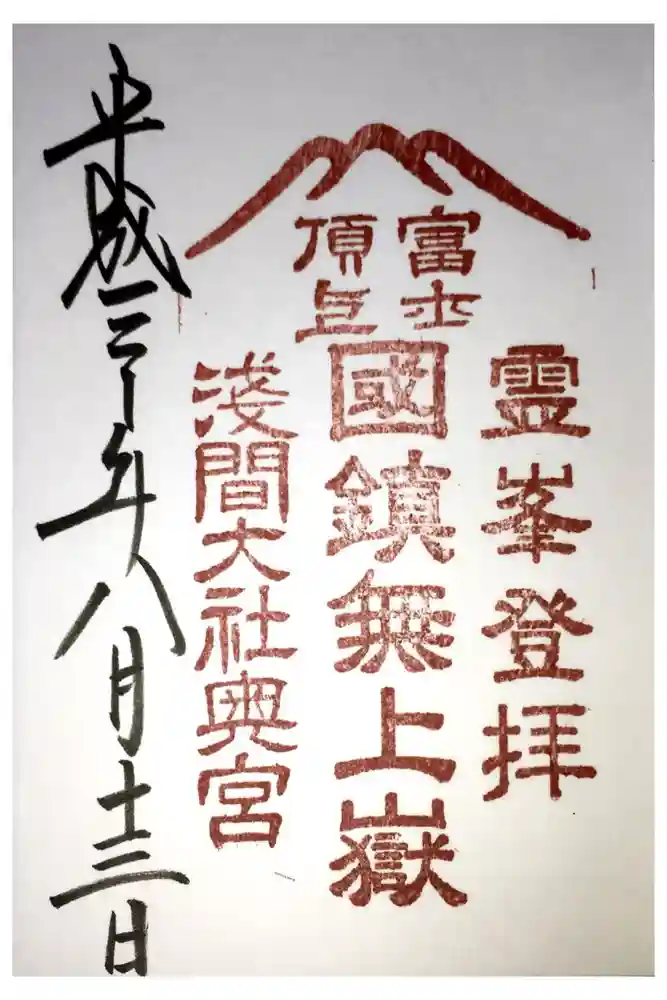 富士
頂上
霊峯登拝
國鎮無上嶽
淺間大社奥宮
平成三十年八月十三日